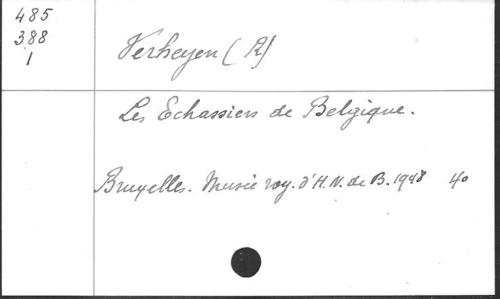 485
388
1
Verheyen (R)
Les Echassiers de Belgique.
Bruxelles. Musée roy. d'H.N. de B. 1948 4o